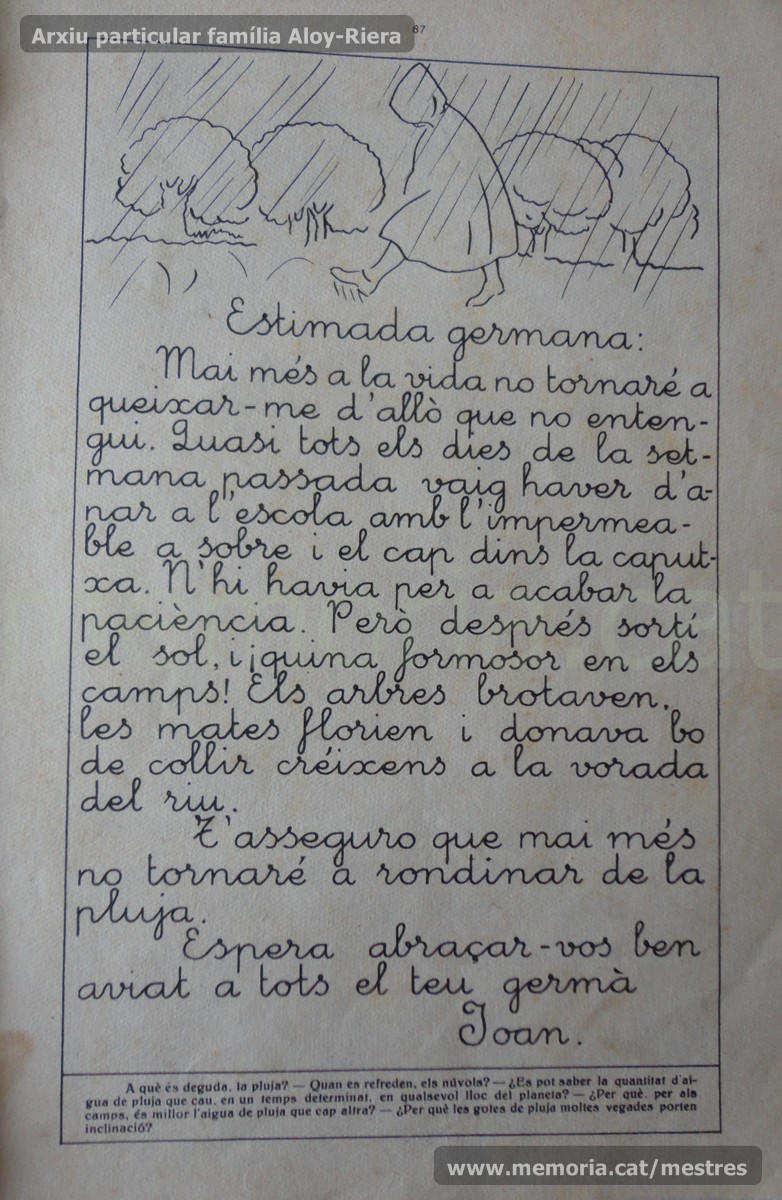 Arxiu particular família Aloy-Riera
67
Estimada germana:
Mai més a la vida no tornaré a
queixar-me d'allò que no enten-
gui. Quasi tots els dies de la set-
mana passada vaig haver d'a-
nar a l'escola amb l'impermea-
ble a sobre i el cap dins la caput-
xa. N'hi havia per a acabar la
paciència. Però després sortí
el sol, i ¡quina formosor en els
camps! Els arbres brotaven,
les mates florien i donava bo
de collir créixens a la vorada
del riu.
T'asseguro que mai més
no tornaré a rondinar de la
pluja.
Espera abraçar-vos ben
aviat a tots el teu germà
Joan.
A què és deguda, la pluja? — Quan es refreden, els núvols? — ¿Es pot saber la quantitat d'ai-
gua de pluja que cau, en un temps determinat, en qualsevol lloc del planeta? — ¿Per què, per als
camps, és millor l'aigua de pluja que cap altra? — ¿Per què les gotes de pluja moltes vegades porten
inclinació?
www.memoria.cat/mestres